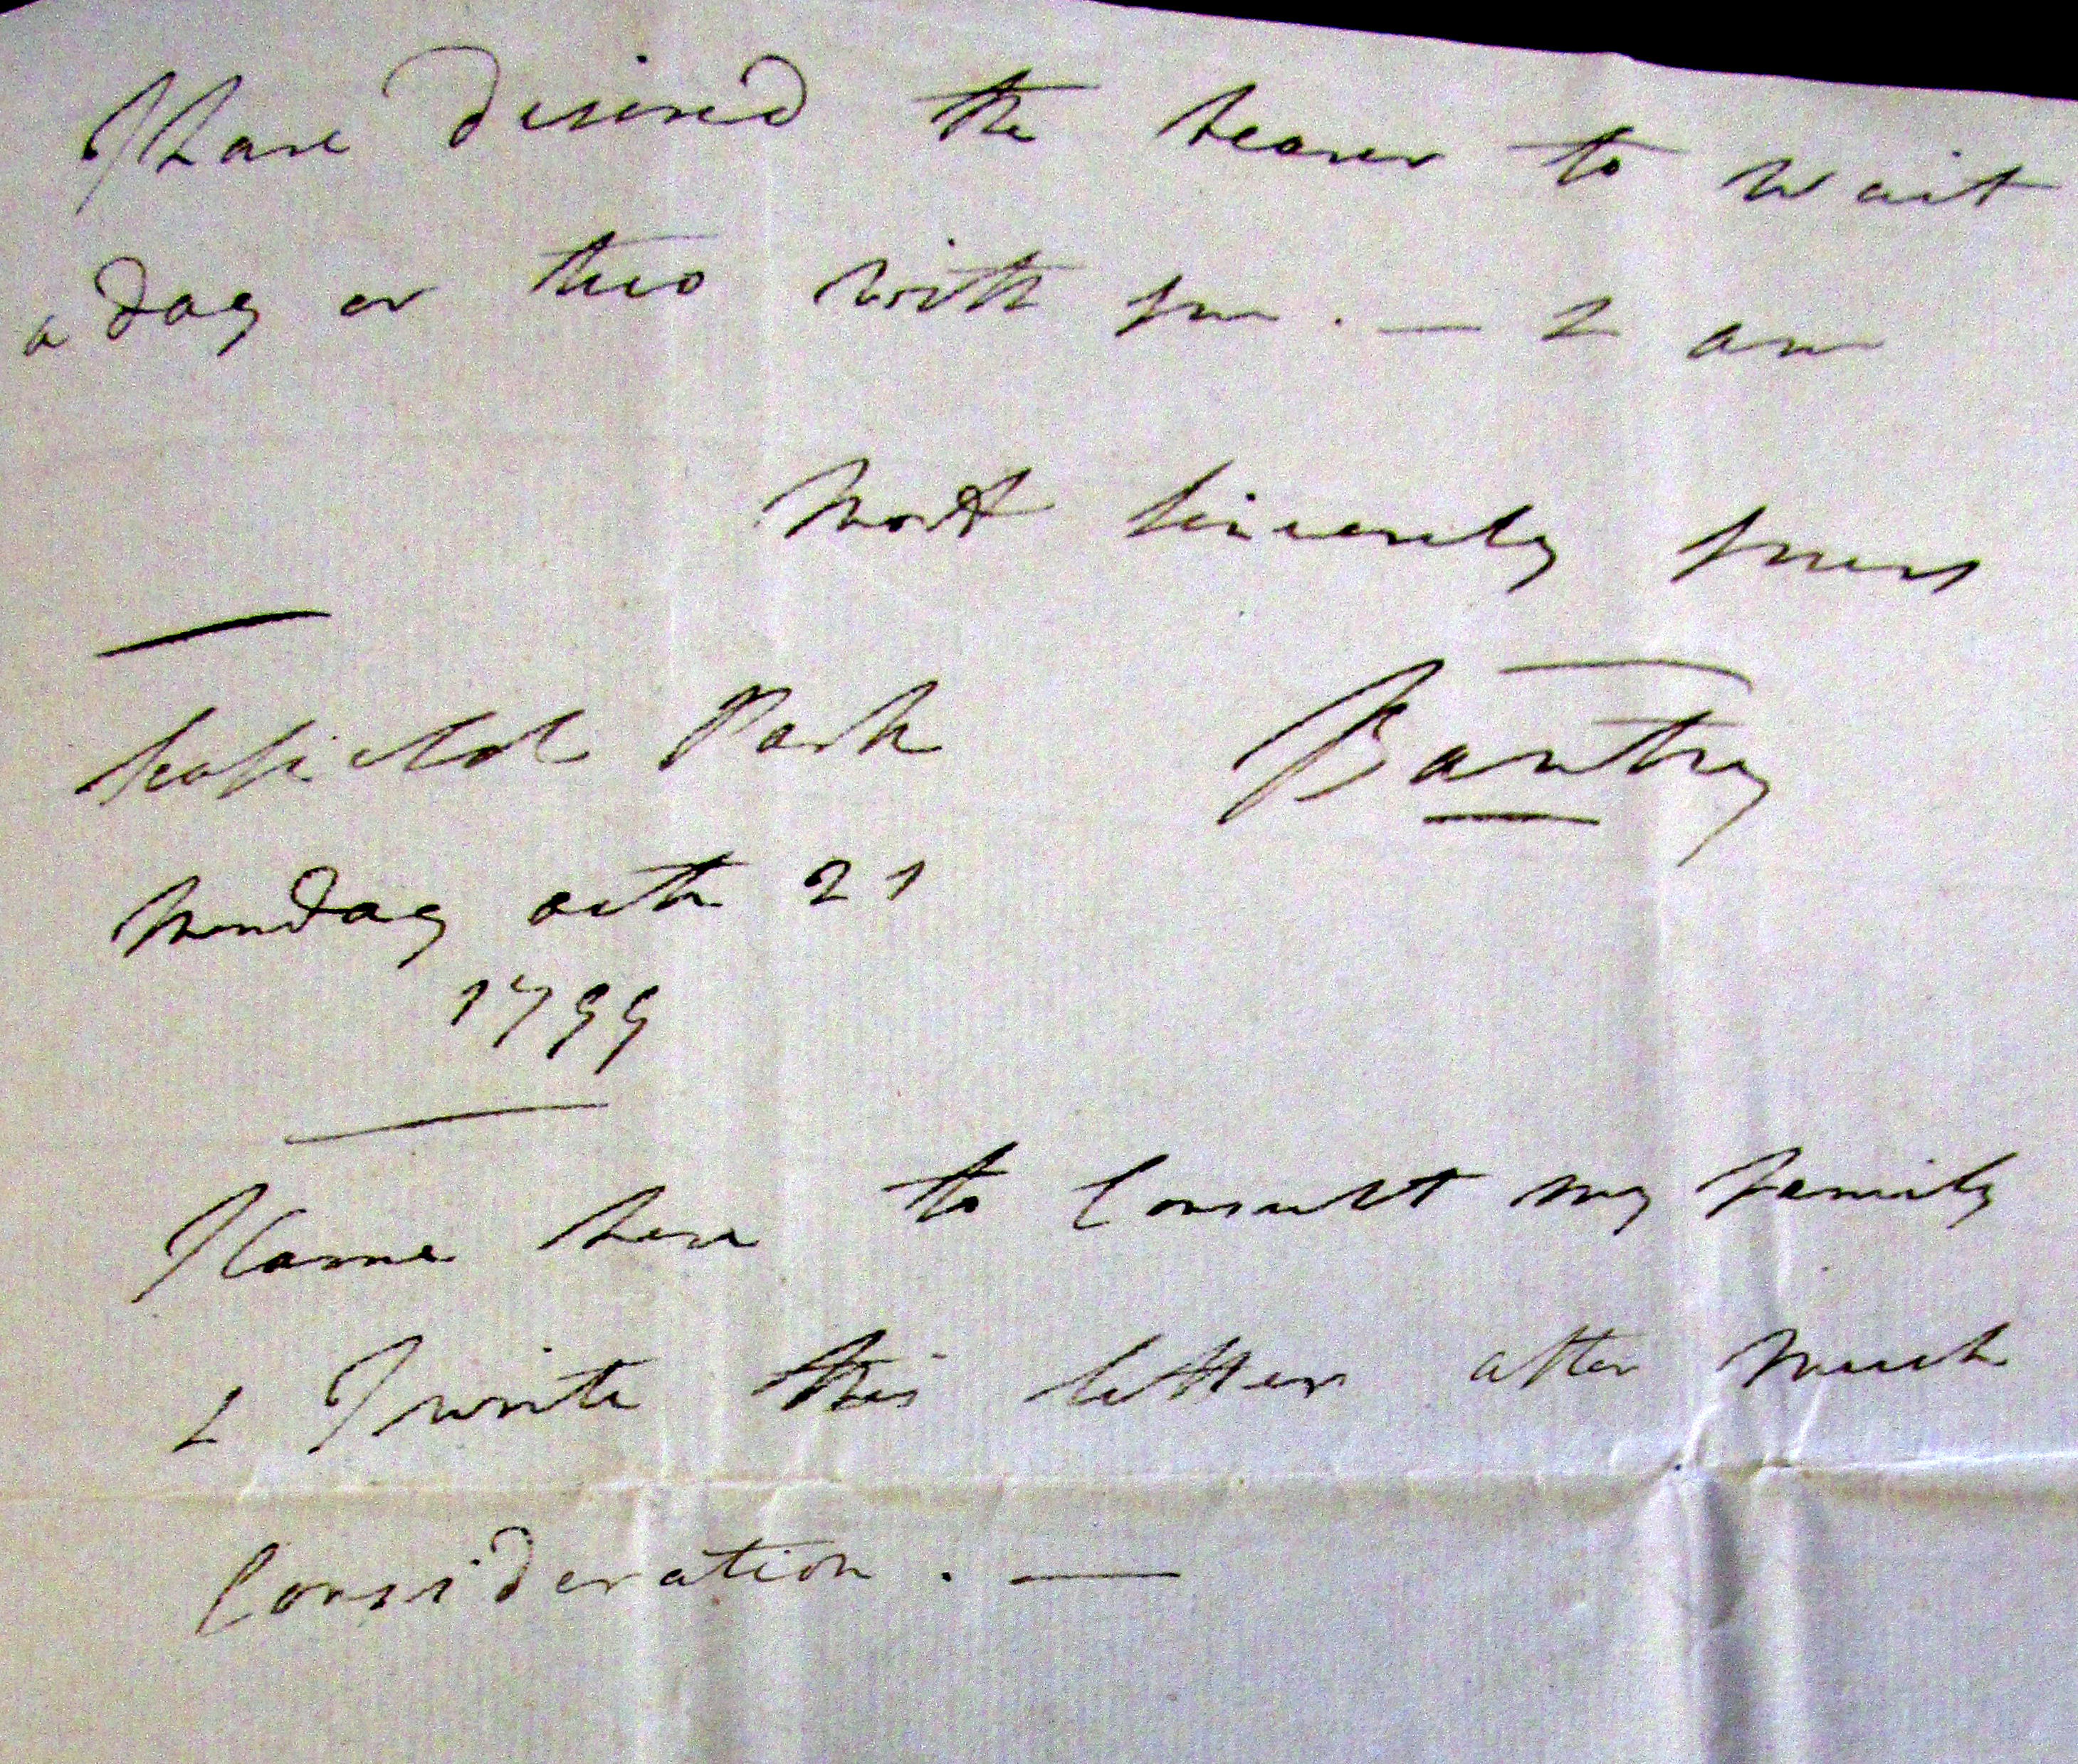 I have desired the bearer to wait
a day or two with you . — I am
most sincerely yours
Seafield Park Bantry
Monday octr 21
1799
I came here to Consult my family
& I write this letter after much
Consideration . —